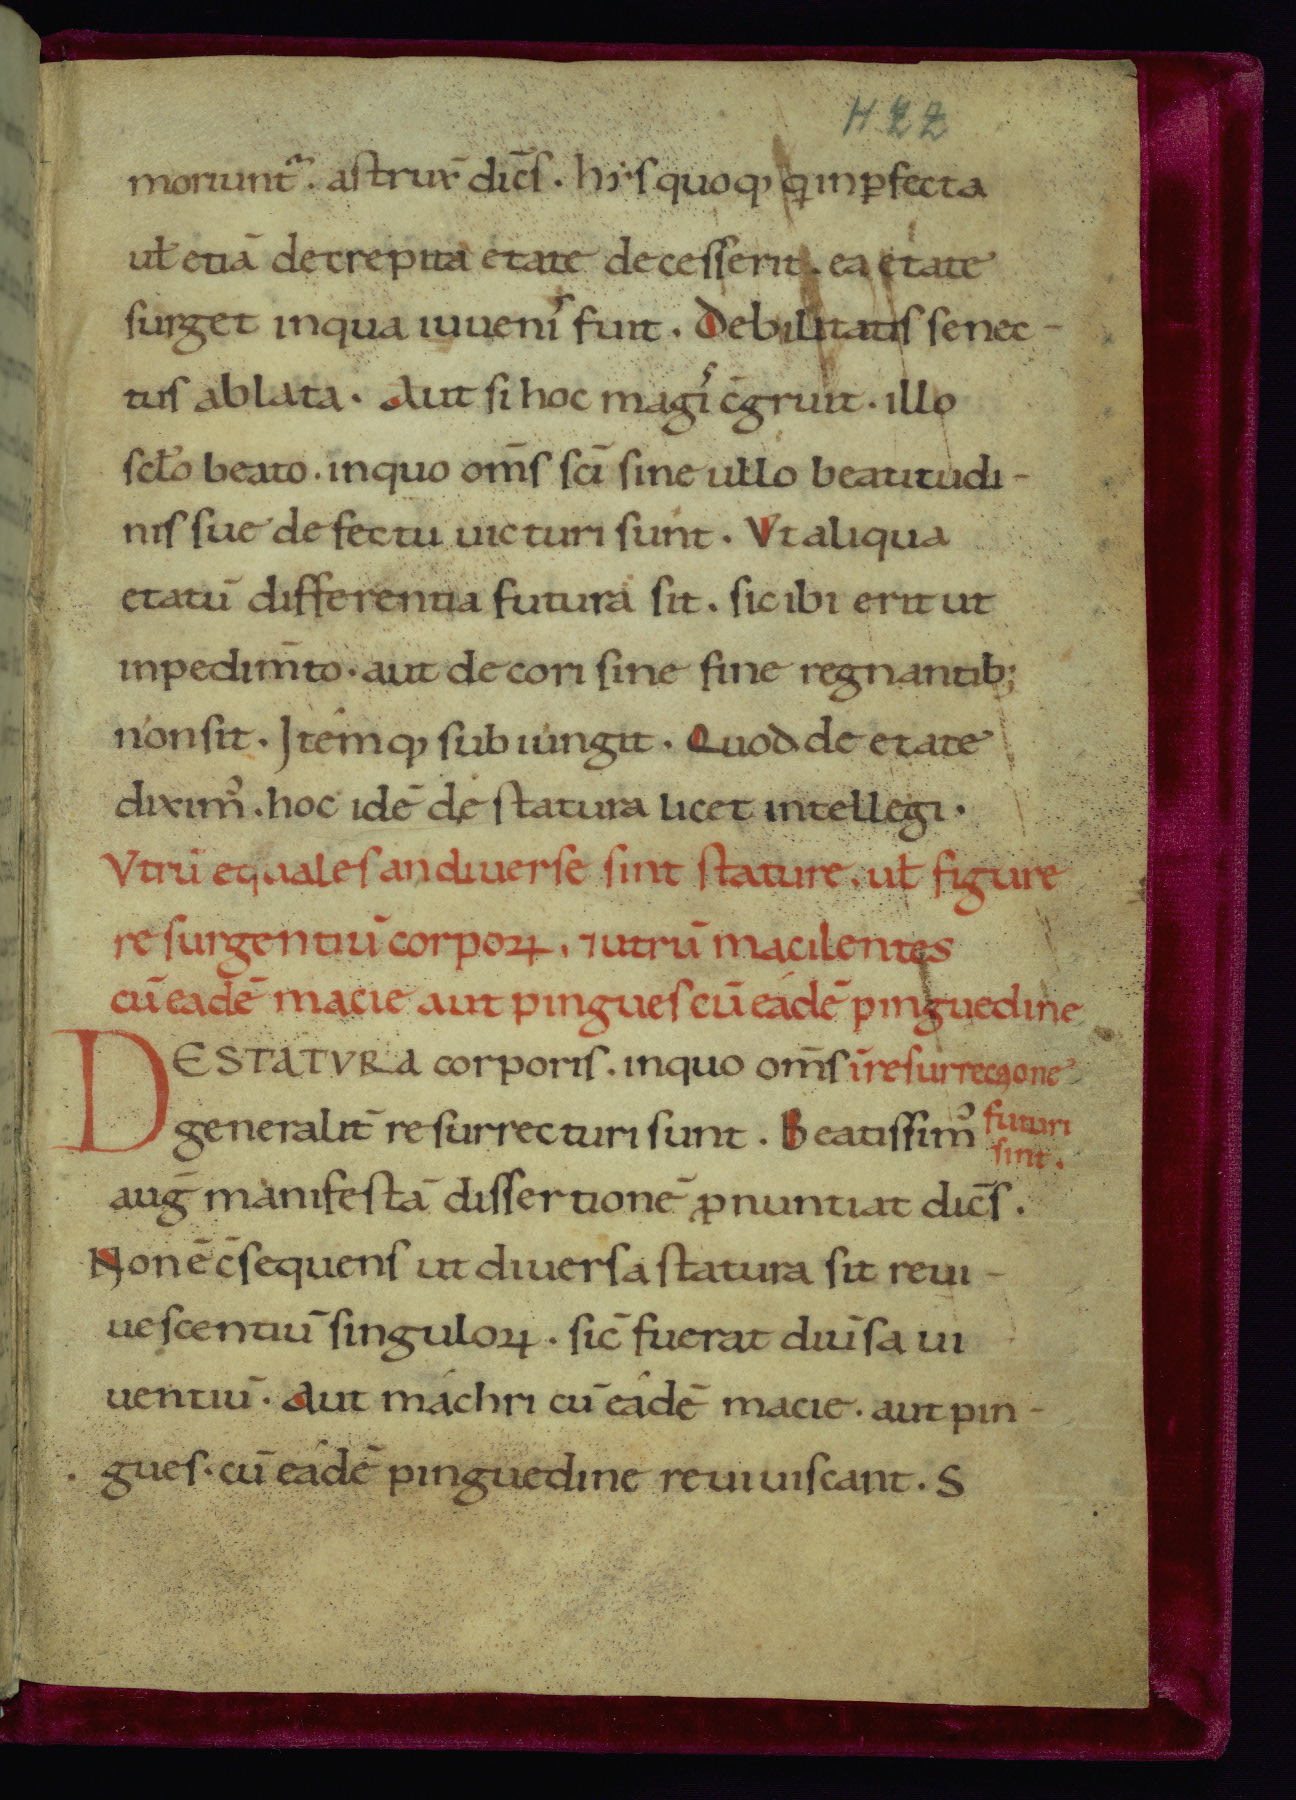 moriunt᷑. astrux̄ dic̄s. his quoq, q inꝑfecta
ul̄ etiā decrepita etate decesserit. ea etate
surget inqua iuueniˢ fuit. Debilitatis senec-
tus ablata. Aut si hoc magiˢ c̄gruit. illo
scl̄o beato. inquo om̄s scī sine ullo beatitudi-
nis sue defectu uicturi sunt. Vt aliqua
etatū differentia futura sit. sic ibi erit ut
inpedim̄to. aut decori sine fine regnantib;
non sit. Item q, subiungit. Quod de etate
dixim᷒. hoc idē de statura licet intellegi.
Vtrū equales an diuerse sint stature. ul̄ figure
resurgentiū corpoꝝ. ⁊ utrū macilentes
cū eadē macie aut pingues cū eadē pinguedine
DE STATVRA corporis. inquo om̄s ī resurrectione
generalit̄ resurrecturi sunt. Beatissim᷒ futuri
sint.
auḡ manifestā dissertionē ꝓnuntiat dic̄s.
Non ē c̄sequens ut diuersa statura sit reui-
uescentiū singuloꝝ. sic̄ fuerat diuīsa ui
uentiū. Aut machri cū eadē macie. aut pin-
gues. cū eadē pinguedine reuiuiscant. S